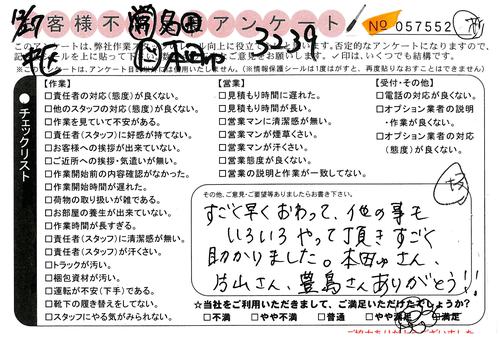 12/27
客様不満点アンケート
No 057552
3239
このアンケートは、弊社作業ス
ル向上に役立
否定的なアンケートになりますので、
ご意見をお願い致します。✓印は、いくつでも結構です。
(※情報保護シールは1度はがすと、再度貼りなおすことはできません)
チェックリスト
【作業】
□責任者の対応(態度)が良くない。
□他のスタッフの対応(態度)が良くない。
□作業を見ていて不安がある。
□責任者(スタッフ)に好感が持てない。
□お客様への挨拶が出来ていない。
□ご近所への挨拶・気遣いが無い。
□作業開始前の内容確認がなかった。
□作業開始時間が遅れた。
□荷物の取り扱いが雑である。
□お部屋の養生が出来ていない。
□作業時間が長すぎる。
□責任者(スタッフ)に清潔感が無い。
□責任者(スタッフ)が汗くさい。
□トラックが汚い。
□梱包資材が汚い。
□運転が不安(下手)である。
□靴下の履き替えをしてない。
□スタッフにやる気がみられない。
【営業】
□見積もり時間に遅れた。
□見積もり時間が長い。
□営業マンに清潔感が無い。
□営業マンが煙草くさい。
□営業マンが汗くさい。
□営業態度が良くない。
□営業の説明と作業が一致してない。
【受付・その他】
□電話の対応が良くない。
□オプション業者の説明
・作業が良くない。
□オプション業者の対応
(態度)が良くない。
その他、ご意見・ご要望等ありましたらお書き下さい。
すごく早くおわって、他の事も
いろいろやって頂きすごく
助かりました。本田ゆさん、
片山さん、豊島さんありがとう!!
☆当社をご利用いただきまして、ご満足いただけたでしょうか?
□不満 □やや不満 □普通 □やや満足 □満足